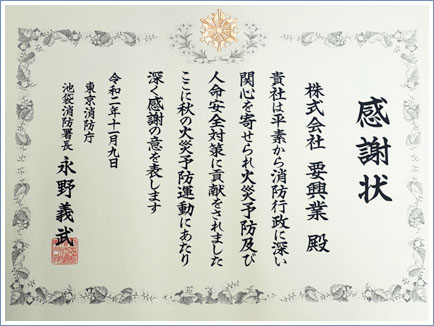 感謝状
株式会社 要興業 殿
貴社は平素から消防行政に深い
関心を寄せられ火災予防及び
人命安全対策に貢献をされました
ここに秋の火災予防運動にあたり
深く感謝の意を表します
令和二年十一月九日
東京消防庁
池袋消防署長 永野義武